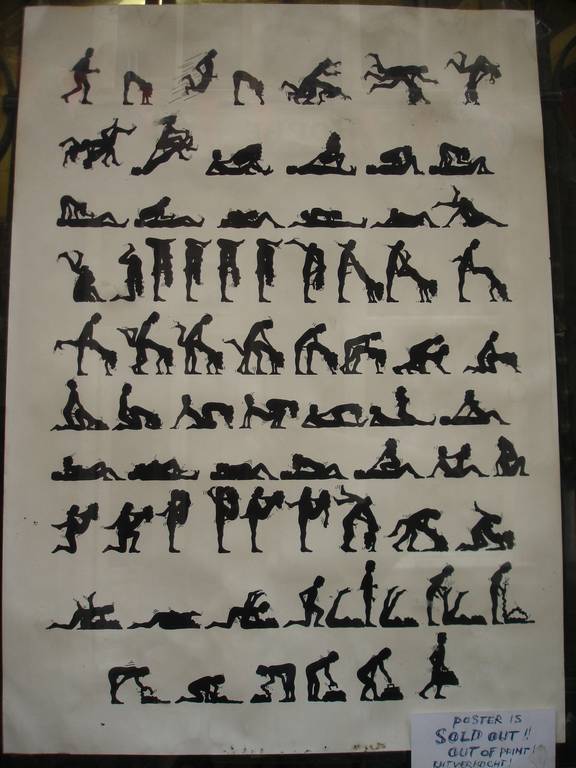 POSTER IS
SOLD OUT!!
OUT OF PRINT!
UITVERKOCHT!